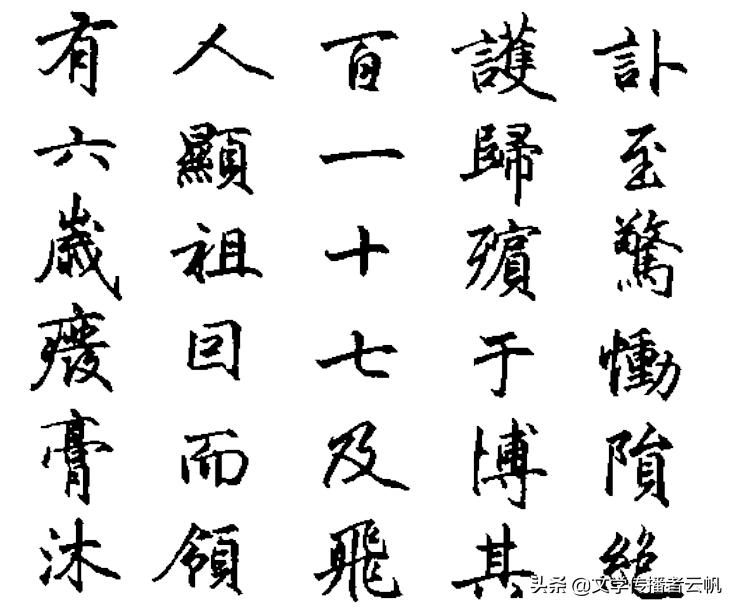 訃至驚慟隕絕
護歸殯于博其
百一十七及飛
人顯祖回而領
有六歲癈膏沐
头条 @文学传播者云帆